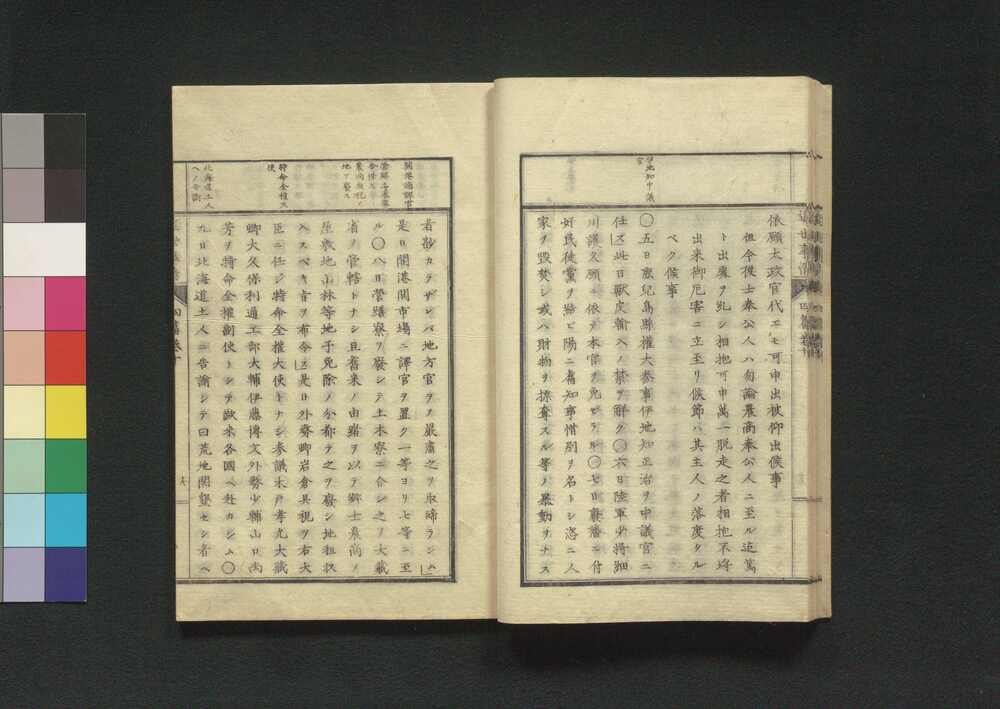 伊地知中議
官
依願太政官代エモ可申出被仰出候事
但今後士奉公人ハ勿論農商奉公人ニ至ル迄篤
ト出處ヲ乱シ相抱可申萬一脱走之者相抱不埒
出来御厄害ニ立至リ候節ハ其主人ノ落度タル
ベク候事
〇五日鹿児島縣權大参事伊地知正治ヲ中議官ニ
任ス此日獣皮輸入ノ禁ヲ解ク〇六日陸軍少将
川護久願ニ依テ本官ヲ免セラル〇七日藩ニ付
奸民徒黨ヲ結ビ陽ニ舊知事惜別ヲ名トシ恣ニ人
家ヲ毀焚シ或ハ財物ヲ掠奪スル等ノ暴動ヲナス
開港場譯官
地ヲ廢ス
特命全權大
使
北海道土人
ヘノ告諭
者尠カラザレバ地方官ヲメ嚴肅之ヲ取締ラシム
是日開港開市場ニ譯官ヲ置ク一等ヨリ七等ニ至
ル〇八日營繕寮ヲ廢シテ土木寮ニ合シ之ヲ大藏
省ノ管轄トナシ且舊来ノ由緒ヲ以テ郷士農商ノ
屋敷地山林等地子免除ノ分都テ之ヲ廢シ地租収
入スベキ旨ヲ布令ス是日外務卿岩倉具視ヲ右大
臣ニ任シ特命全權大使トナシ参議木戸孝允大藏
卿大久保利通工部大輔伊藤博文外務少輔山口尚
芳ヲ特命全權副使トシテ歐米各國ヘ赴カシム〇
九日北海道土人ニ告諭シテ曰荒地開墾セシ者ヘ